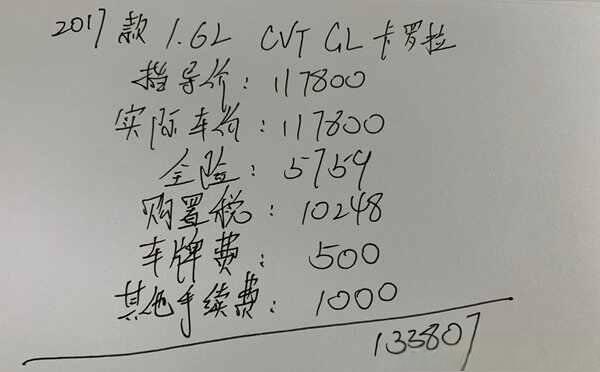 2017款 1.6L CVT GL 卡罗拉
指导价: 117800
实际车价: 117800
全险: 5759
购置税: 10248
车牌费: 500
其他手续费: 1000
133807